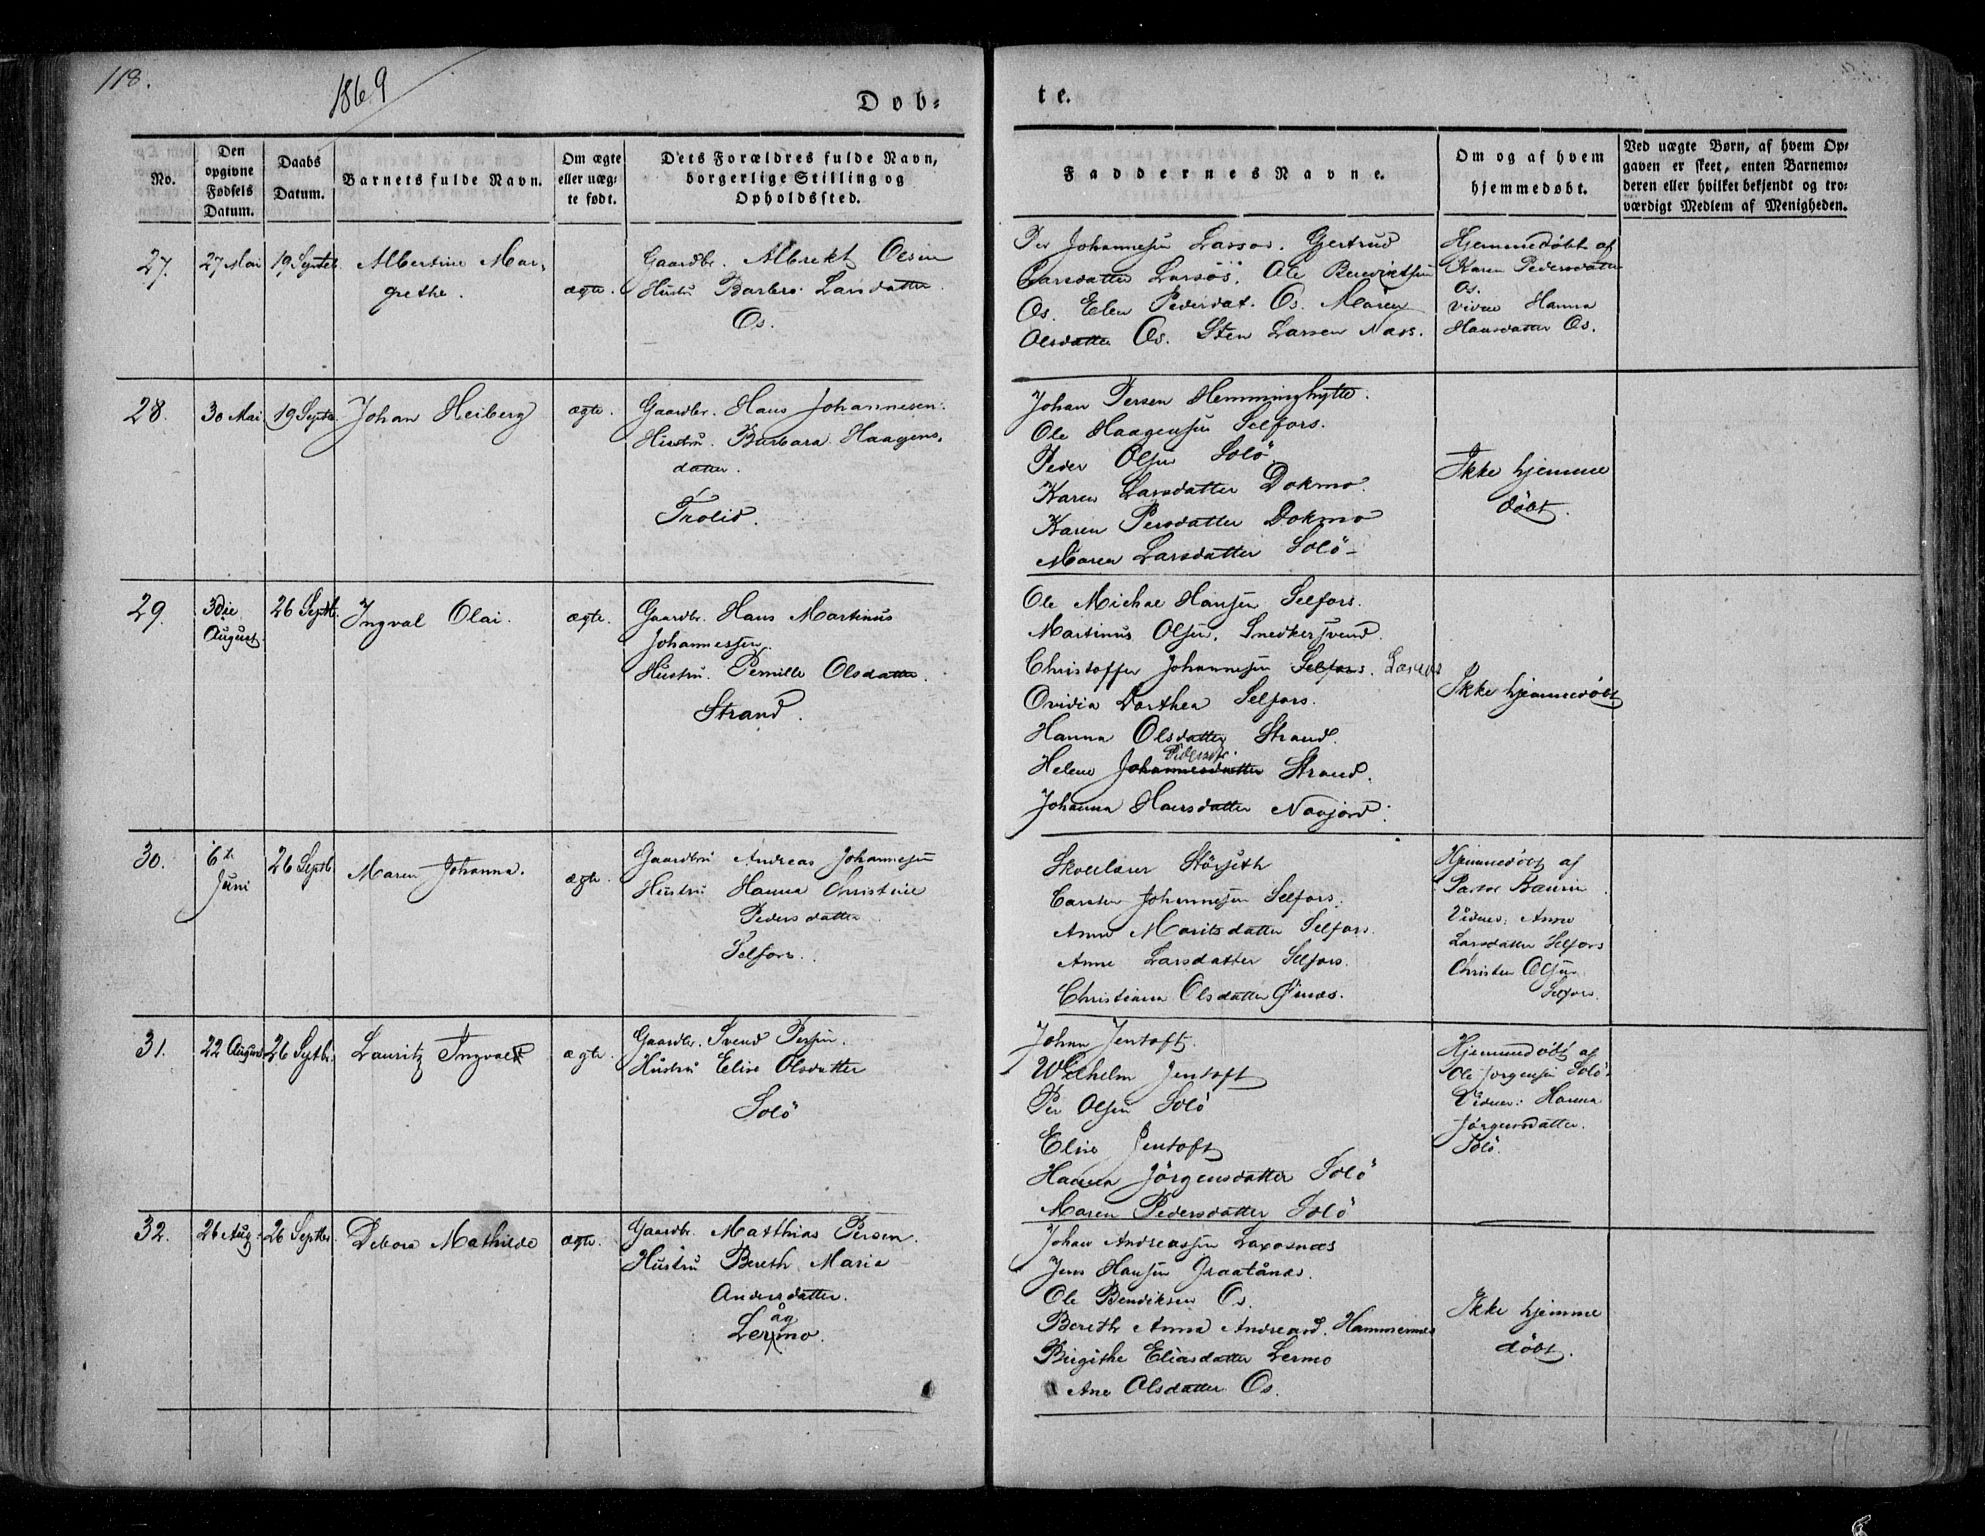 118.
1869
Døb-
te.
No.
Den
opgivne
Fødsels
Datum.
Daabs
Datum.
Barnets fulde Navn.
Om ægte
eller uæg-
te født.
Dets Forældres fulde Navn,
borgerlige Stilling og
Opholdssted.
Faddernes Navne.
Om og af hvem
hjemmedøbt.
Ved uægte Børn, af hvem Op-
gaven er skeet, enten Barnemo-
deren eller hvilket bekjendt og tro-
værdigt Medlem af Menigheden.
27.
27 Mai
19 Septbr
Albertine Mar-
grethe.
ægte.
Gaardbr. Albrekt Olsen
Hustru Barbro Larsdatter.
Os.
Per Johannesen Gertrud
Larsdatter Ole Benediktsen
Os. Elen Pedersdat. Os. Maren
Olsdatter Os. Sten Larsen Næs.
Hjemmedøbt af
Karen Pedersdatter
Os.
Vidne Hanna
Hansdatter Os.
28.
30 Mai
19 Septbr.
Johan Heiberg
ægte.
Gaardbr. Hans Johannesen.
Hustru. Barbara Haagens-
datter.
Trolid.
Johan Persen Hemminghytte.
Ole Haagensen Selfors.
Peder Olsen Solö
Karen Larsdatter Dokmo.
Karen Persdatter Dokmo
Maren Larsdatter Solö
Ikke hjemme
døbt.
29.
3die
August
26 Septb.
Ingval Olai.
ægte.
Gaardbr. Hans Martinus
Johannessen.
Hustru. Pernille Olsdatter.
Strand.
Ole Michal Hansen Selfors.
Martinus Olsen, Snedkersvend.
Christoffer Johannesen Selfors.
Ovidia Dorthea Selfors.
Hanna Olsdatter Strand.
Pedersdtr.
Helene Johannesdatter Strand.
Johanna Hansdatter Navjord.
Ikke hjemmedøbt
30.
6te
Juni
26 Septb.
Maren Johanna.
ægte.
Gaardbr Andreas Johannesen
Hustru Hanna Christine
Pedersdatter
Selfors.
Skolelærer Störseth
Carsten Johannesen Selfors.
Anne Moritsdatter Selfors.
Anne Larsdatter Selfors.
Christiana Olsdatter
Hjemmedøbt af
Pastor
Vidner: Anne
Larsdatter Selfors
Christen Olsen
Selfors.
31.
22 August
26 Septbr.
Lauritz Ingvald
ægte.
Gaardbr. Svend Persen.
Hustru Elise Olsdatter
Solö
Johan Jentoft.
Wilhelm Jentoft
Per Olsen Solö
Elise Jentoft
Hanna Jörgensdatter Solö
Maren Pedersdatter Solö
Hjemmedøbt af
Ole Jörgensen Solö
Vidner: Hanna
Jörgensdatter.
Solö.
32.
26 Aug.
26 Septbr.
Debora Mathilde
ægte.
Gaardbr. Matthias Persen.
Hustru Bereth Marie
Andersdatter.
åg
Lermo.
Johan Andreassen Laxosnæs
Jens Hansen Graatånæs.
Ole Bendiksen Os.
Bereth Anna Andreasd. Hammernæs
Birgithe Eliasdatter Lermo
Ane Olsdatter Os.
Ikke hjemme
døbt.